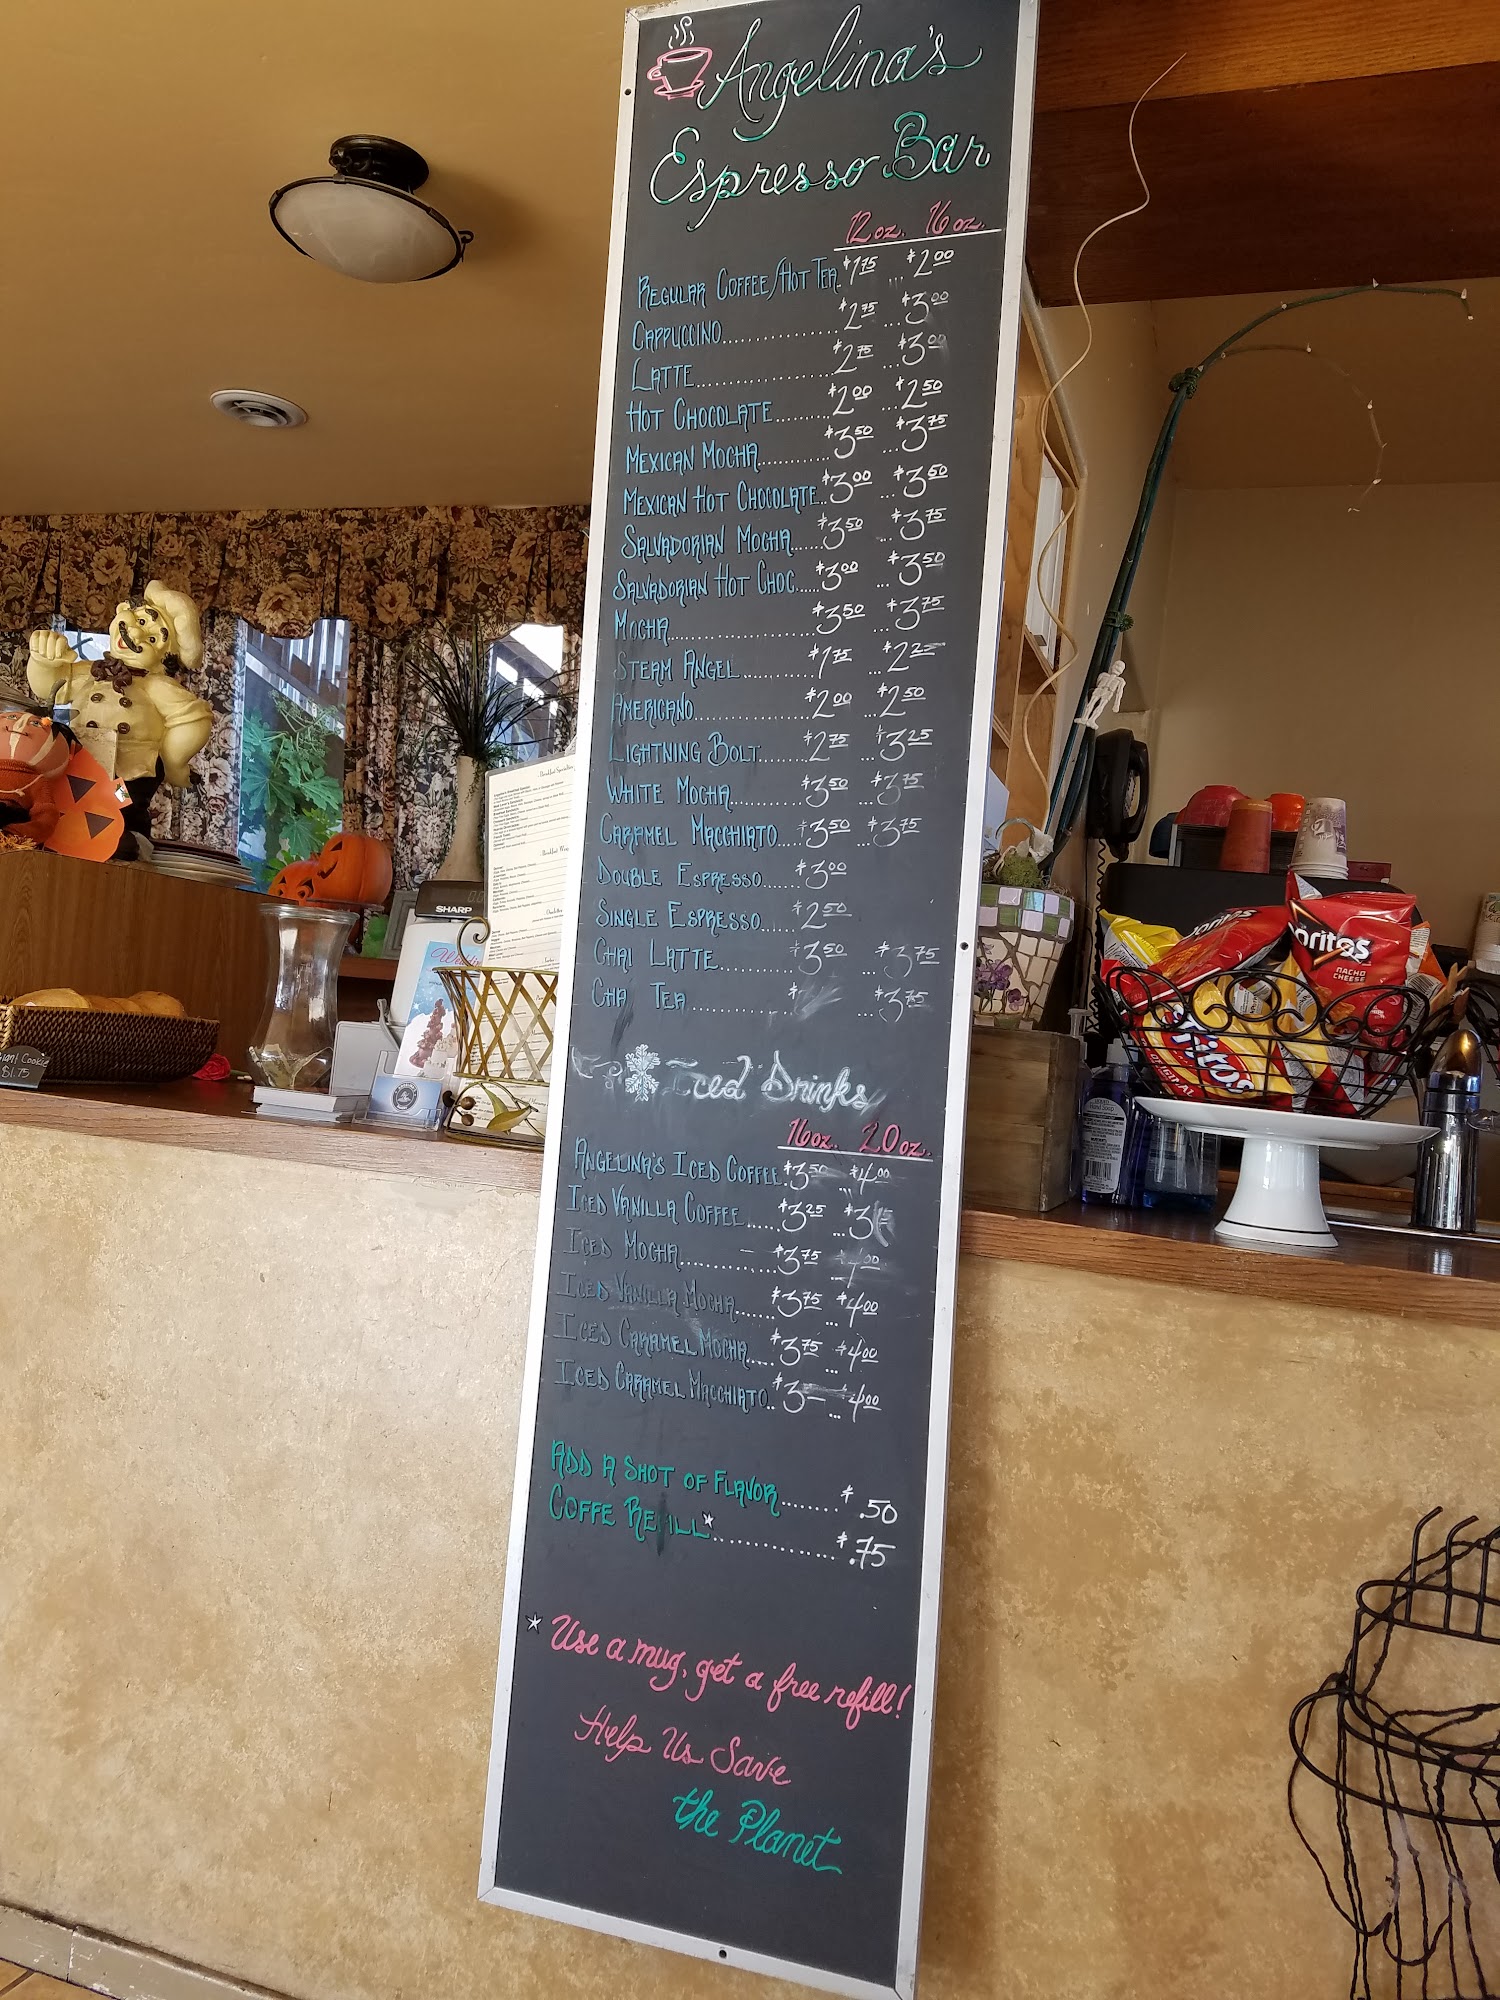 Angelina's
Espresso Bar
12 oz. 16 oz.
REGULAR COFFEE/HOT TEA. $1.75 ... $2.00
CAPPUCCINO................ $2.75 ... $3.00
LATTE................... $2.75 ... $3.00
HOT CHOCOLATE........ $2.00 ... $2.50
MEXICAN MOCHA.......... $3.50 ... $3.75
MEXICAN HOT CHOCOLATE.. $3.00 ... $3.50
SALVADORIAN MOCHA..... $3.50 ... $3.75
SALVADORIAN HOT CHOC..... $3.00 ... $3.50
MOCHA..................... $3.50 ... $3.75
STEAM ANGEL.......... $1.75 ... $2.25
AMERICANO................ $2.00 ... $2.50
LIGHTNING BOLT...... $2.75 ... $3.25
WHITE MOCHA.......... $3.50 ... $3.75
CARAMEL MACCHIATO... $3.50 ... $3.75
DOUBLE ESPRESSO..... $3.00
SINGLE ESPRESSO..... $2.50
CHAI LATTE.......... $3.50 ... $3.75
CHA TEA .............. $ ... $3.75
Iced Drinks
16oz. 20oz.
ANGELINA'S ICED COFFEE. $3.50 ... $4.00
ICED VANILLA COFFEE...... $3.25 ... $3
ICED MOCHA............. $3.75 ... $4.00
ICED VANILLA MOCHA....... $3.75 ... $4.00
ICED CARAMEL MOCHA..... $3.75 ... $4.00
ICED CARAMEL MACCHIATO.. $3 ... $4.00
ADD A SHOT OF FLAVOR....... $.50
COFFE REFILL*............. $.75
* Use a mug, get a free refill!
Help Us Save
the Planet
SHARP
Giant Cookie
$1.75
Breakfast Specialties
Doritos
Doritos
NACHO
CHEESE
Fritos
ORIGINAL